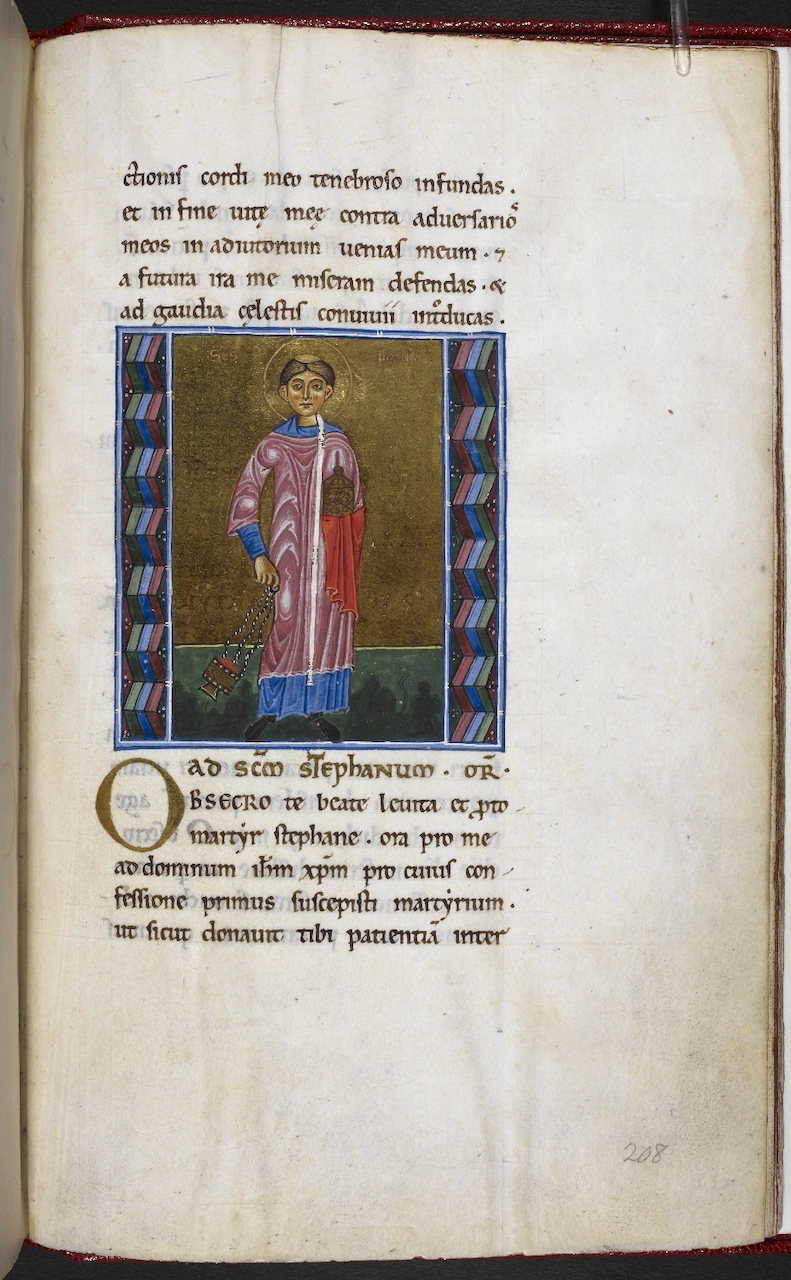 ctionis cordi meo tenebroso infundas.
et in fine uitę meę contra aduersario᷒
meos in adiutorium uenias meum. ⁊
a futura ira me miseram defendas. &
ad gaudia cęlestis conuiuii int͛ducas.
SCS
AD SC̄M STEPHANUM. OR̄.
OBSECRO te beate leuita et ꝓto
martẏr stephane. ora pro me
ad dominum ih̄m xp̄m pro cuius con-
fessione primus suscepisti martẏrium.
ut sicut donauit tibi patientiā inter
208